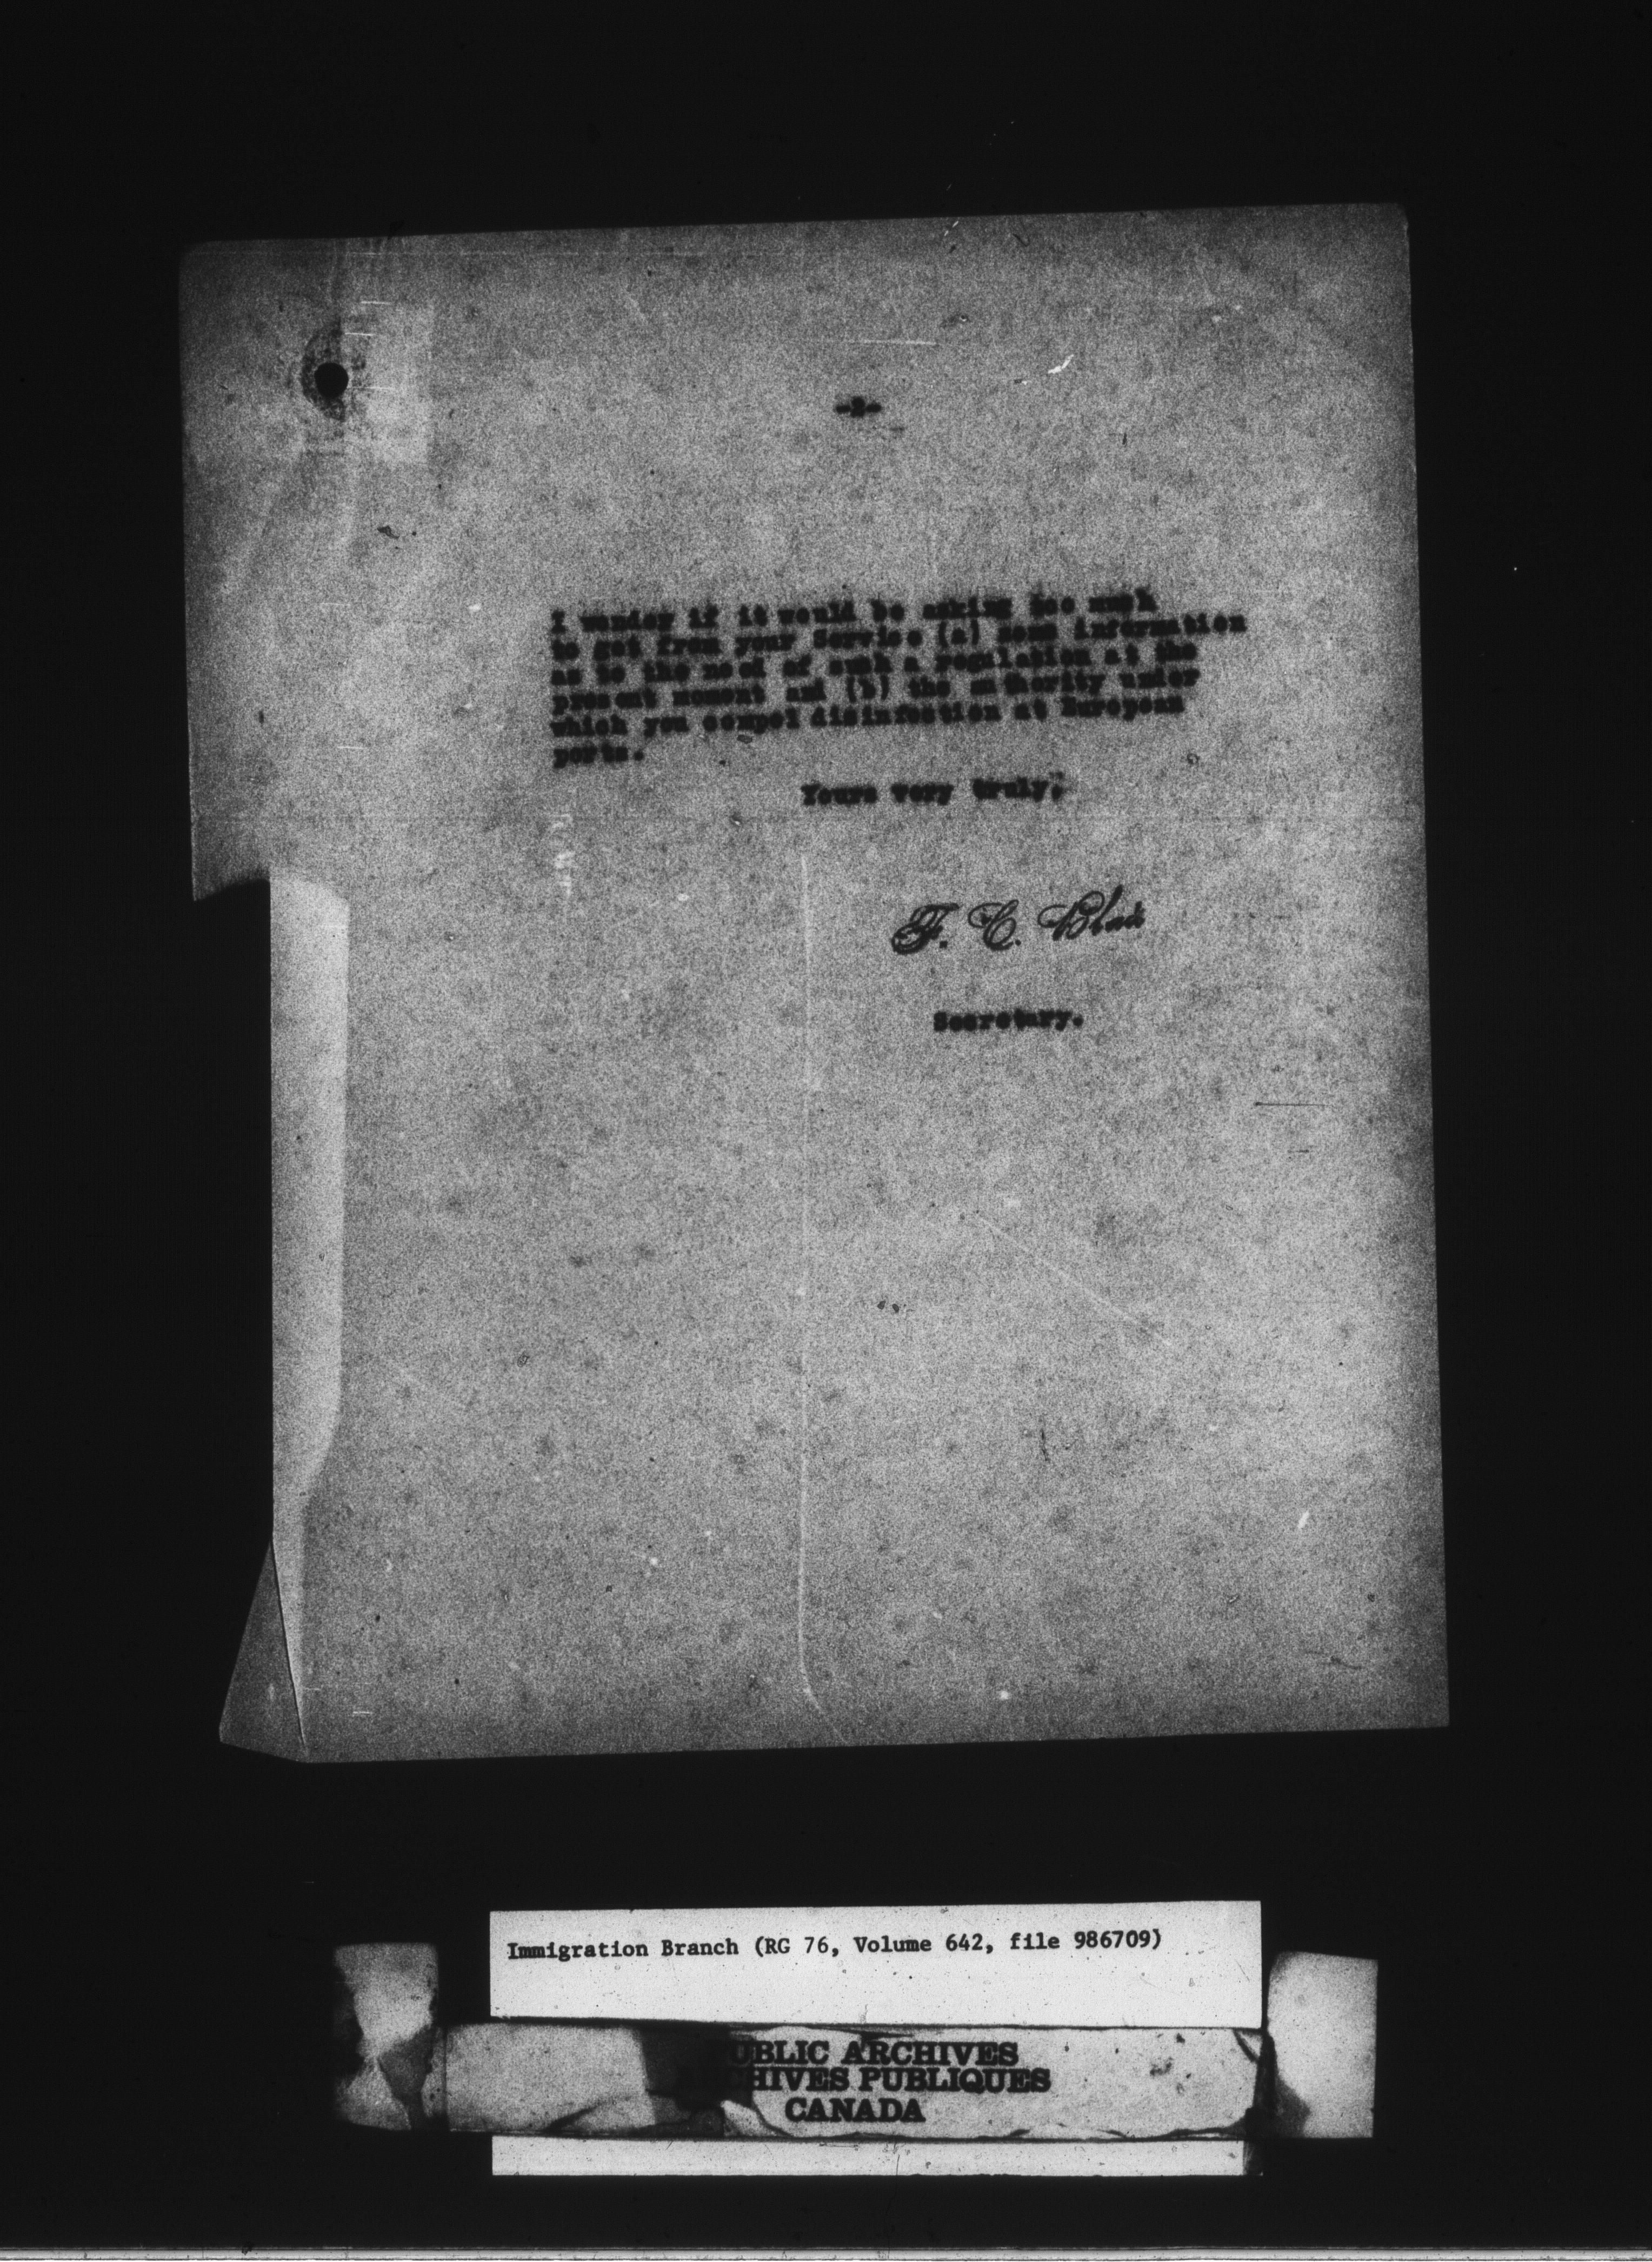 -2-
I wonder if it would be asking too much
to get from your Service (a) some information
as to the need of such a regulation at the
present moment and (b) the authority under
which you compel disinfection at European
ports.
Yours very truly,
F. C. Blair
Secretary.
Immigration Branch (RG 76, Volume 642, file 986709)
PUBLIC ARCHIVES
ARCHIVES PUBLIQUES
CANADA